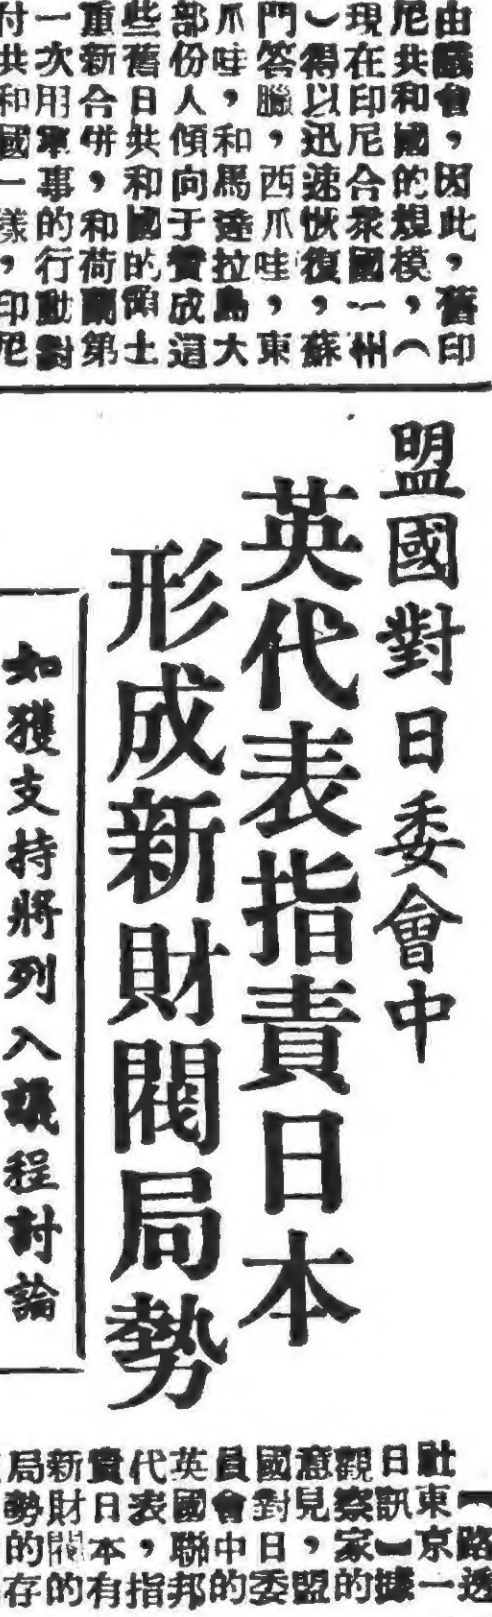 由議會，因此，舊印
尼共和國的規模，（
現在印尼合衆國一州
）得以迅速恢復，蘇
門答臘，西爪哇，東
爪哇，和馬達拉島大
部份人傾向于贊成這
些舊日共和國的領土
重新合併，和荷蘭第
一次用軍事的行動對
付共和國一樣，印尼
盟國對日委會中
英代表指責日本
形成新財閥局勢
如獲支持將列入議程討論
【路透
社東京一
日訊】據
觀察家的
意見，盟
國對日委
員會中的
英國聯邦
代表，指
責日本有
新財閥的
局勢的存